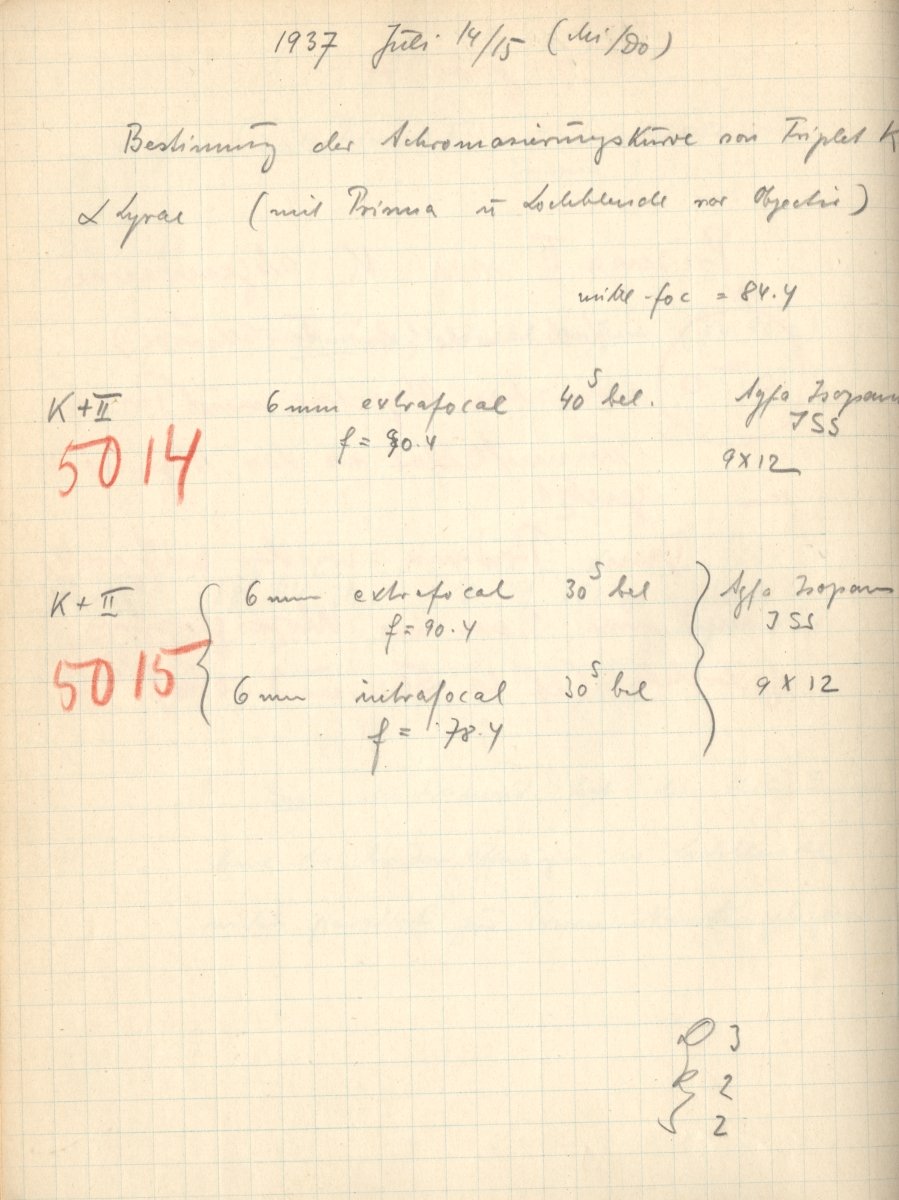 1937 Juli 14/15 (Mi/Do)
Bestimmung der Achromasierungskurve von Triplet K
α Lyrae (mit Prisma u Lochblende vor Objectiv)
mittl. foc = 84.4
K + II 6 mm extrafocal 40ˢ bel. Agfa Isopan
f = 90.4 ISS
5014 9 x 12
K + II 6 mm extrafocal 30ˢ bel Agfa Isopan
f = 90.4 ISS
5015 6 mm intrafocal 30ˢ bel 9 x 12
f = 78.4
3
2
2